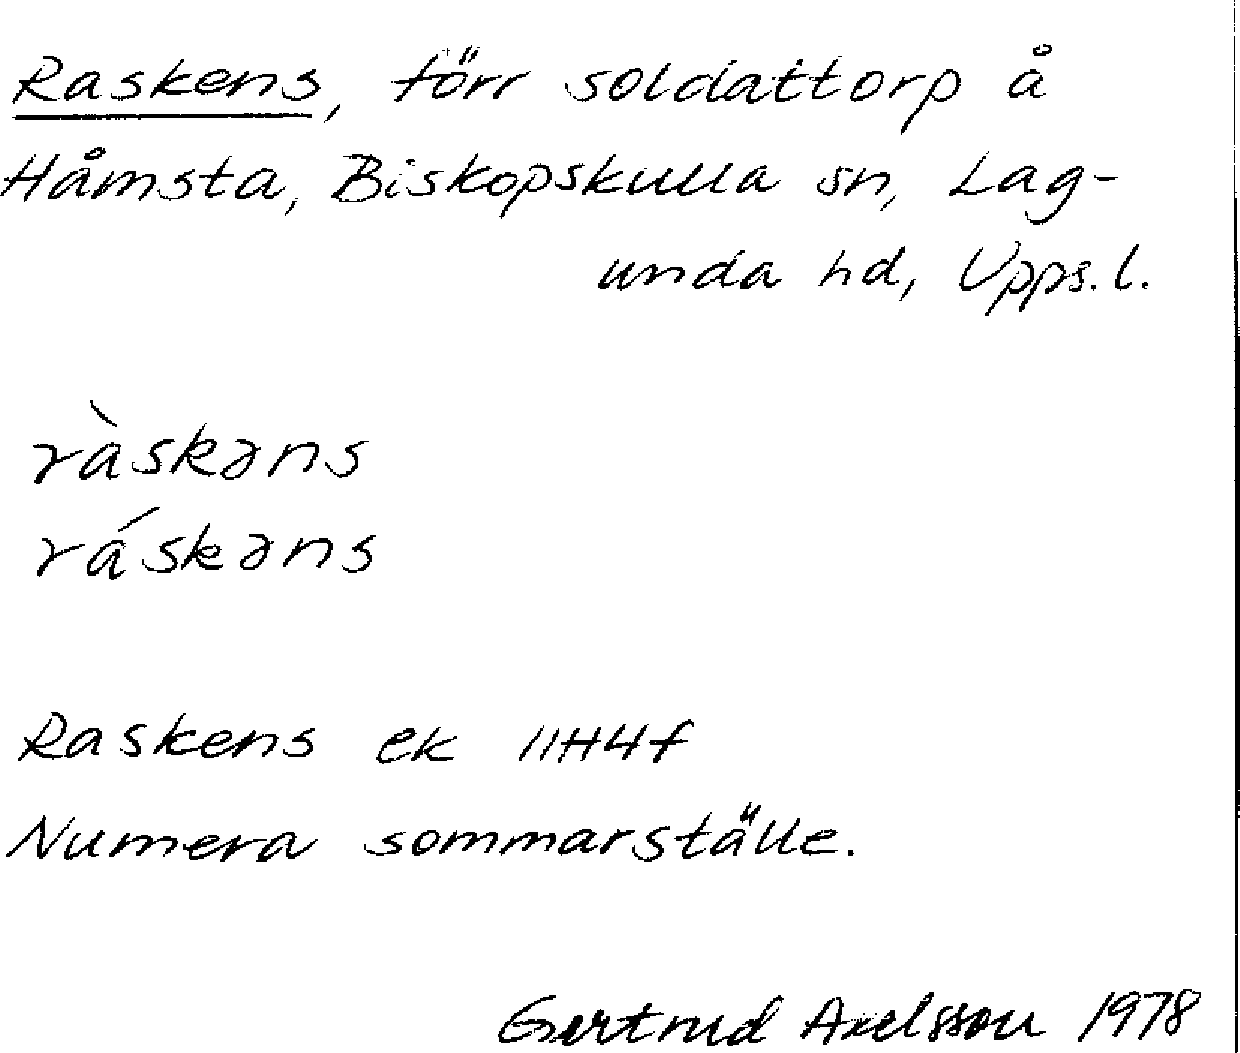 Raskens, förr soldattorp å
Håmsta, Biskopskulla sn, Lag-
unda hd, Upps. l.
ràskəns
ráskəns
Raskens ek 11H4f
Numera sommarställe.
Gertrud Axelsson 1978